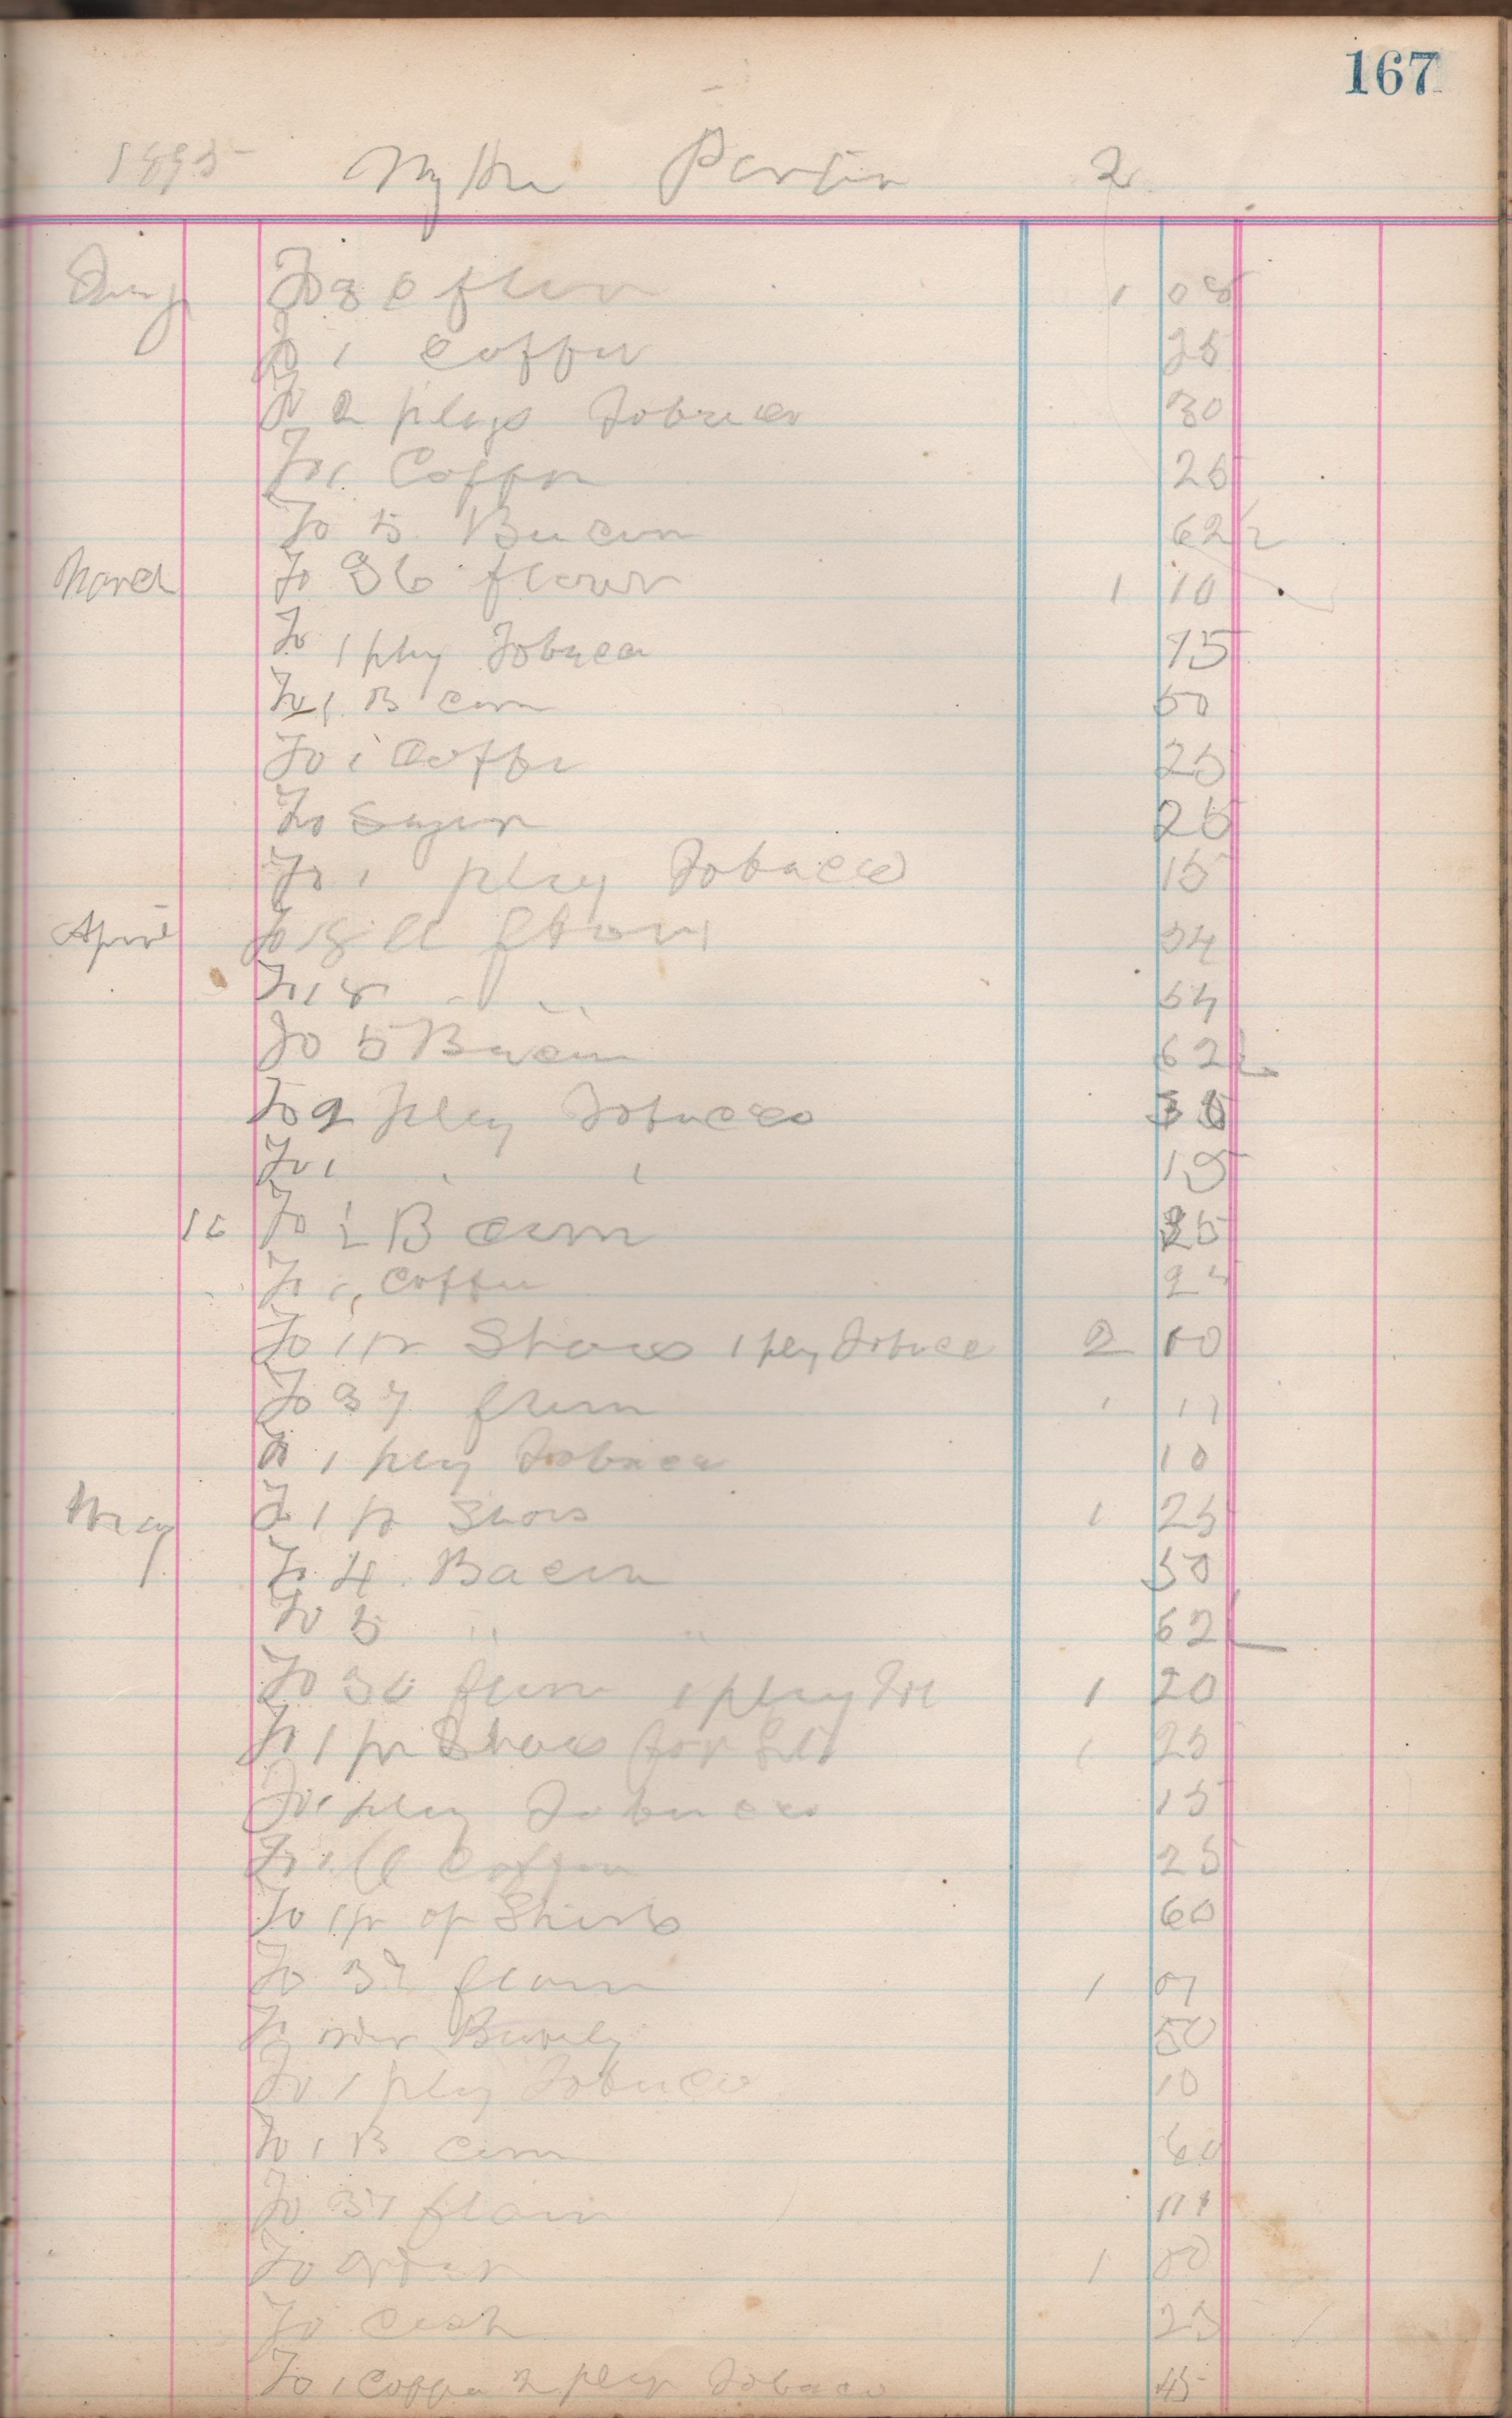 167
1895 Parsin 2
To 3 flour 1 08
To 1 Coffee 25
To 2 plugs Tobacco 30
To 1 Coffee 25
To 5 Bacon 62 1/2
March To 36 flour 1 10
To 1 plug Tobacco 15
To 1 B corn 50
To 1 Coffe 25
To Sugar 25
To 1 plug Tobacco 15
April To 18 ll flour 54
To 18 " " 54
To 5 Bacon 62 1/2
To 2 plug Tobacco 30
To 1 " " 15
16 To 1/2 B corn 25
To 1 Coffee 25
To 1 pr Shoes 1 plug Tobacco 2 10
To 37 flour 1 11
To 1 plug Tobacco 10
May To 1 pr Shoes 1 25
To 4 Bacon 50
To 5 " " 62 1/2
To 36 flour 1 plug Tob 1 20
To 1 pr Shoes for 1 25
To 1 plug Tobacco 15
To 1 ll Coffee 25
To 1 pr of Shirts 60
To 37 flour 1 07
To order 50
To 1 plug Tobacco 10
To 1 B corn 60
To 37 flour 111
To order 1 00
To Cash 25
To 1 Coffee 2 plug Tobaco 45